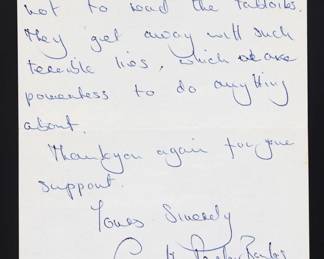 not to read the tabloids.
They get away with such
terrible lies, which we are
powerless to do anything
about.
Thankyou again for your
support.
Yours Sincerely